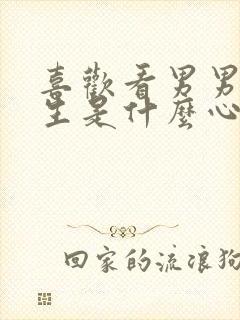 喜歡看男男
生是什麼心
回家的流浪狗